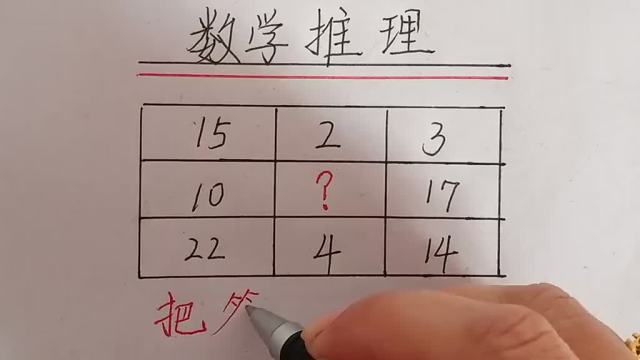 数学推理
15 2 3
10 ? 17
22 4 14
把